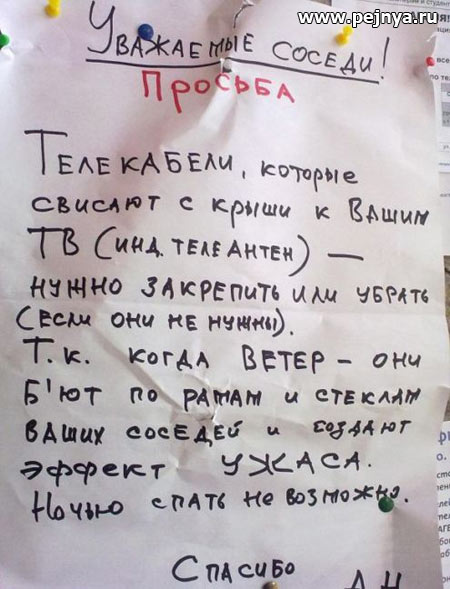 www.pejnya.ru
Уважаемые соседи!
Просьба
Телекабели, которые
свисают с крыши к Вашим
ТВ (инд. телеантен) —
нужно закрепить или убрать
(если они не нужны).
Т.к. когда ветер – они
б'ют по рамам и стеклам
ваших соседей и создают
эффект УЖАСА.
Ночью спать не возможно.
Спасибо